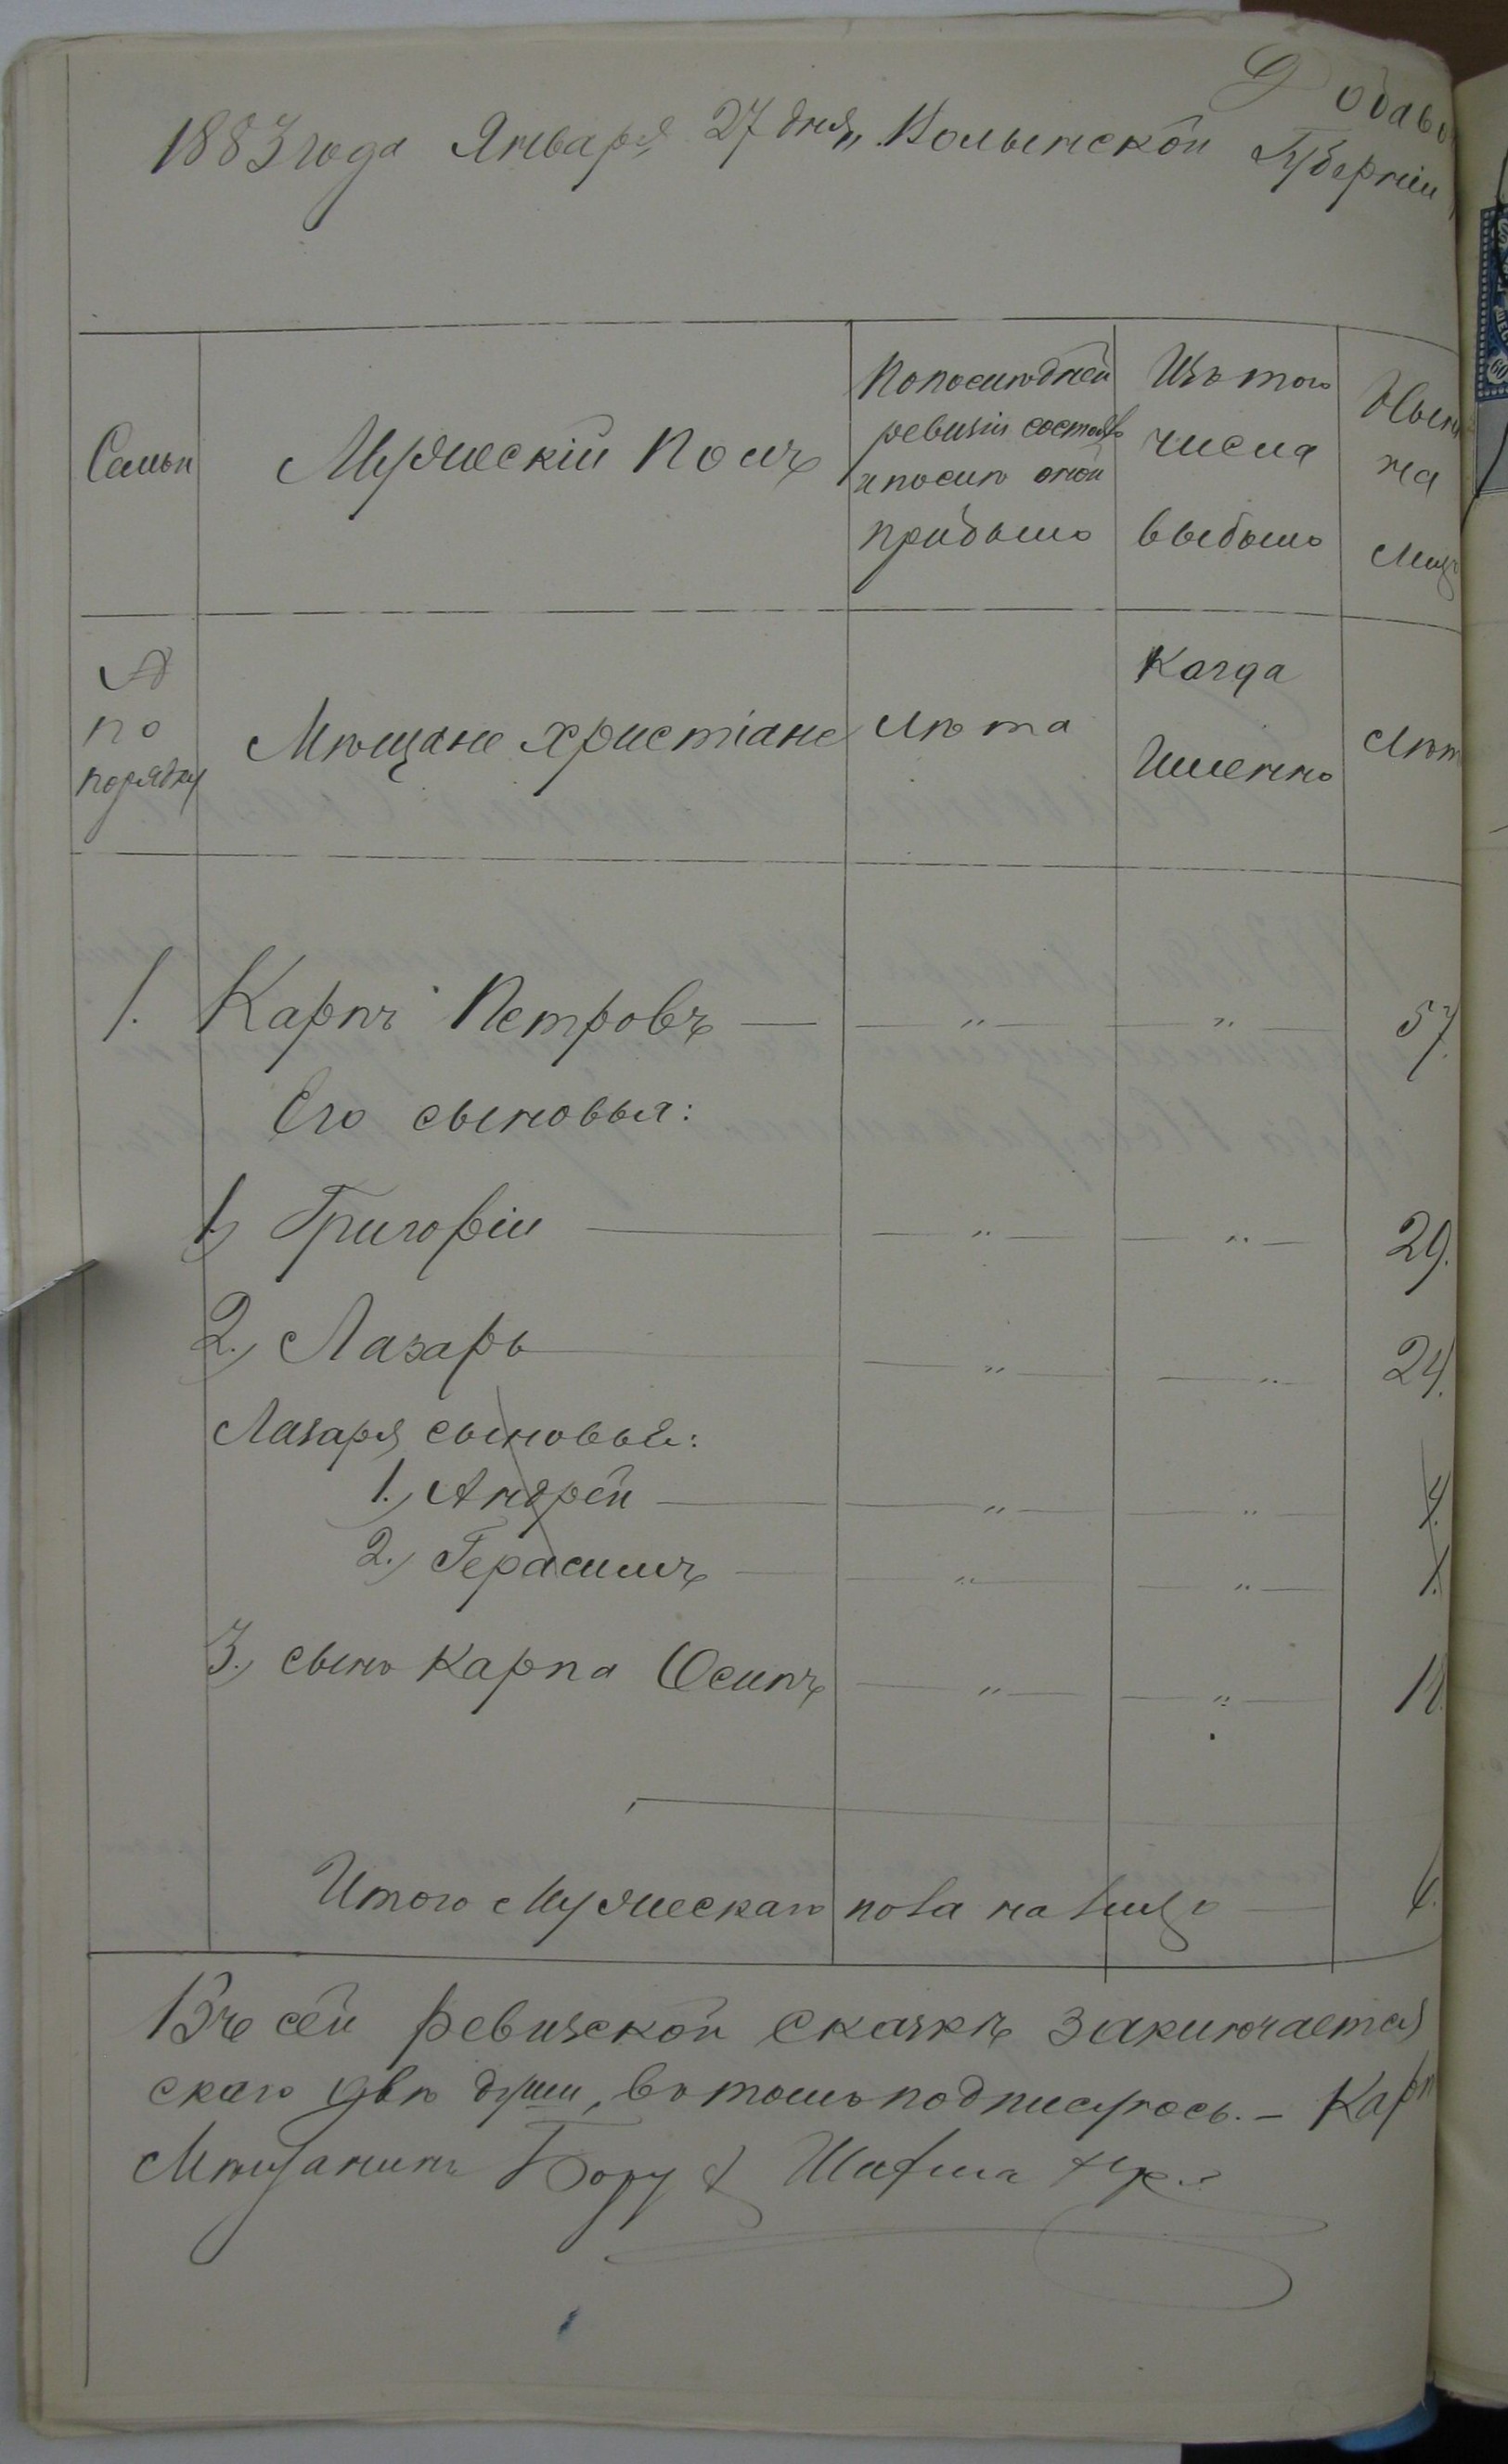 Добаво
1883 года Января 27 дня, Волынской Губерніи
Семьи
Мужескій Полъ
По последней
ревизіи состояло
и после оной
прибыло
Изъ того
числа
выбыло
Ныне
на
лицо
№
по
порядку
Мѣщане христіане
лѣта
Когда
Именно
лѣт
1. Карпъ Петровъ — " — " — 57.
Его сыновья:
1) Григорій — " — " — 29.
2.) Лазарь — " — " — 24.
Лазаря сыновья:
1.) Андрей — " — " — 4.
2.) Герасимъ — " — " — 1.
3.) сынъ Карпа Осипъ — " — " —
Итого Мужескаго пола на лицо — 6.
Въ сей ревизской сказкѣ заключается
скаго двѣ души, въ томъ подписуюсь. — Карп
Мѣщанинъ